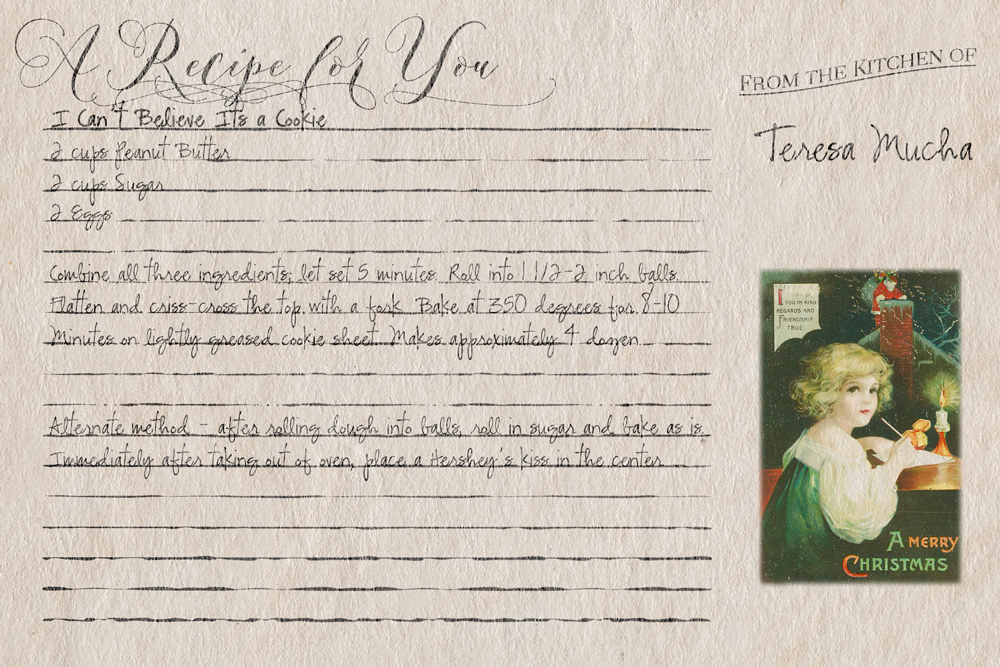 A Recipe for You
FROM THE KITCHEN OF
Teresa Mucha
I Can't Believe Its a Cookie
2 cups Peanut Butter
2 cups Sugar
2 Eggs
Combine all three ingredients; let set 5 minutes. Roll into 1 1/2-2 inch balls.
Flatten and criss-cross the top with a fork. Bake at 350 degrees for 8-10
Minutes on lightly greased cookie sheet. Makes approximately 4 dozen.
Alternate method - after rolling dough into balls, roll in sugar and bake as is.
Immediately after taking out of oven, place a Hershey's kiss in the center.
YOU IN KIND
REGARDS AND
FRIENDSHIP
TRUE
A MERRY
CHRISTMAS